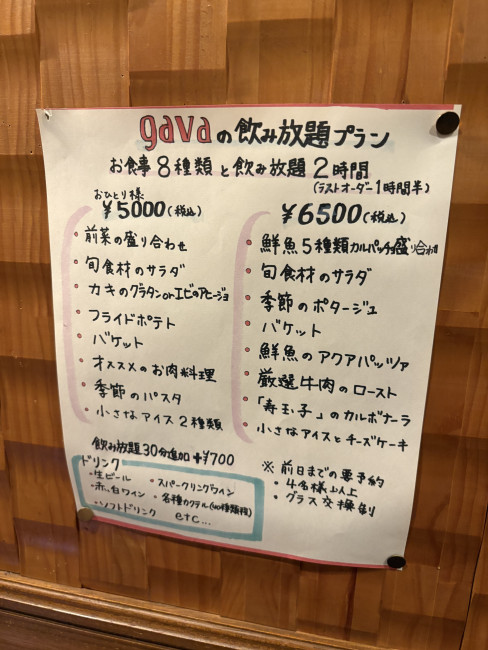 gavaの飲み放題プラン
お食事8種類と飲み放題2時間
(ラストオーダー1時間半)
おひとり様
¥5000(税込)
・前菜の盛り合わせ
・旬食材のサラダ
・カキのグラタンorエビのアヒージョ
・フライドポテト
・バケット
・オススメのお肉料理
・季節のパスタ
・小さなアイス2種類
¥6500(税込)
・鮮魚5種類カルパッチョ盛り合わせ
・旬食材のサラダ
・季節のポタージュ
・バケット
・鮮魚のアクアパッツァ
・厳選牛肉のロースト
・「寿玉子」のカルボナーラ
・小さなアイスとチーズケーキ
飲み放題30分追加+¥700
ドリンク
・生ビール ・スパークリングワイン
・赤、白ワイン ・各種カクテル(40種類程)
・ソフトドリンク etc...
※前日までの要予約
・4名様以上
・グラス交換制